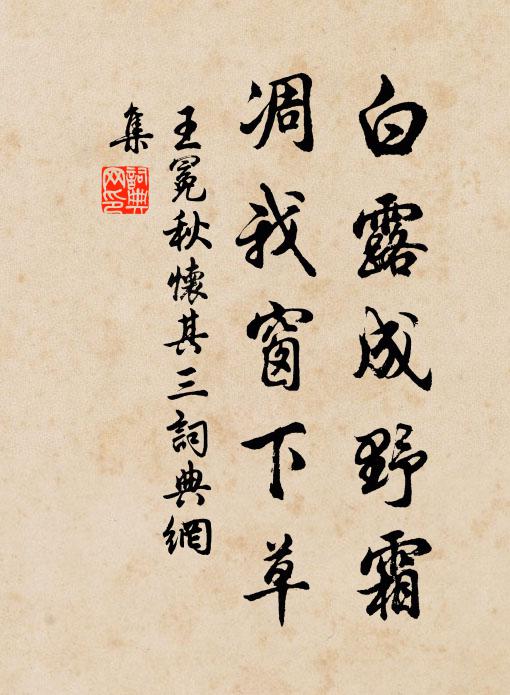 白露成野霜
凋我窗下草
王冕秋懷其三詞典網
集
詞典
网印